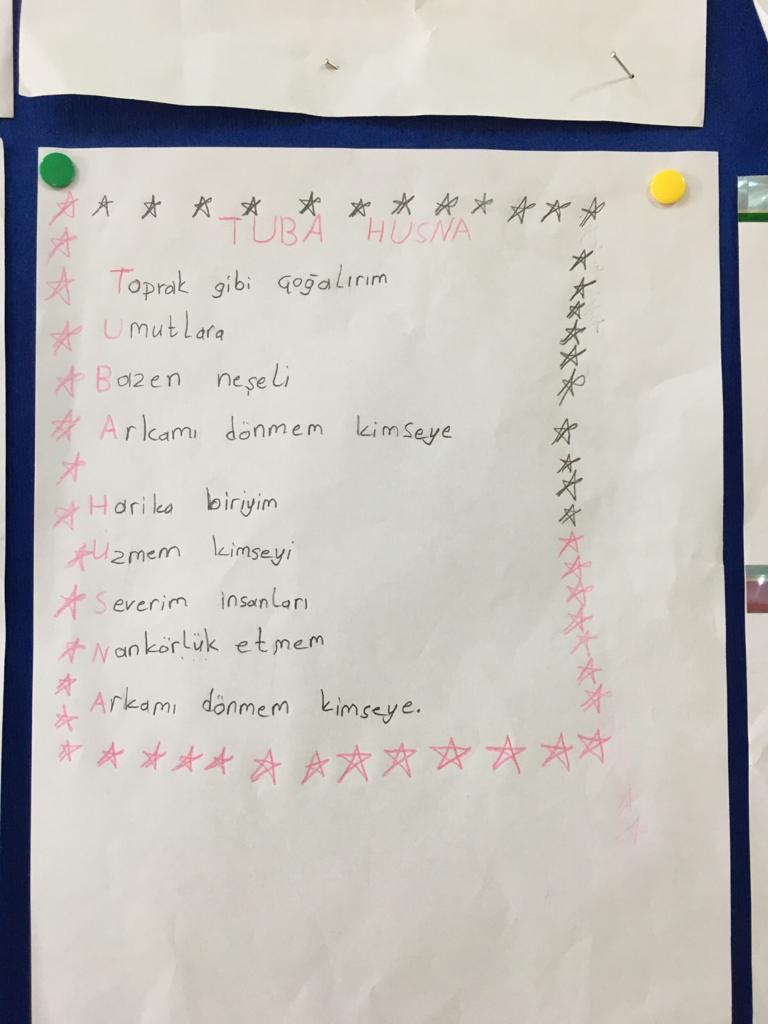 TUBA HUSNA
Toprak gibi çoğalırım
Umutlara
Bazen neşeli
Arkamı dönmem kimseye
Harika biriyim
Uzmem kimseyi
Severim insanları
Nankörlük etmem
Arkamı dönmem kimseye.